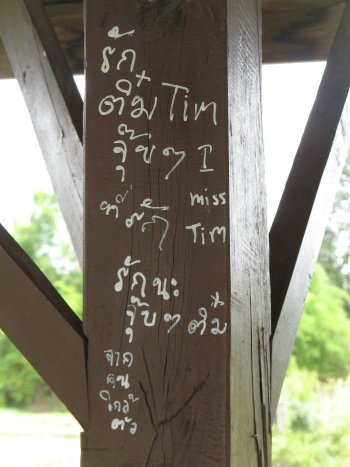 รัก
ติ๋ม Tim
จุ๊บๆ I
ที่รัก miss
Tim
รักนะ
จุ๊บๆ ติ๋ม
จาก
คน
ใกล้
ตัว